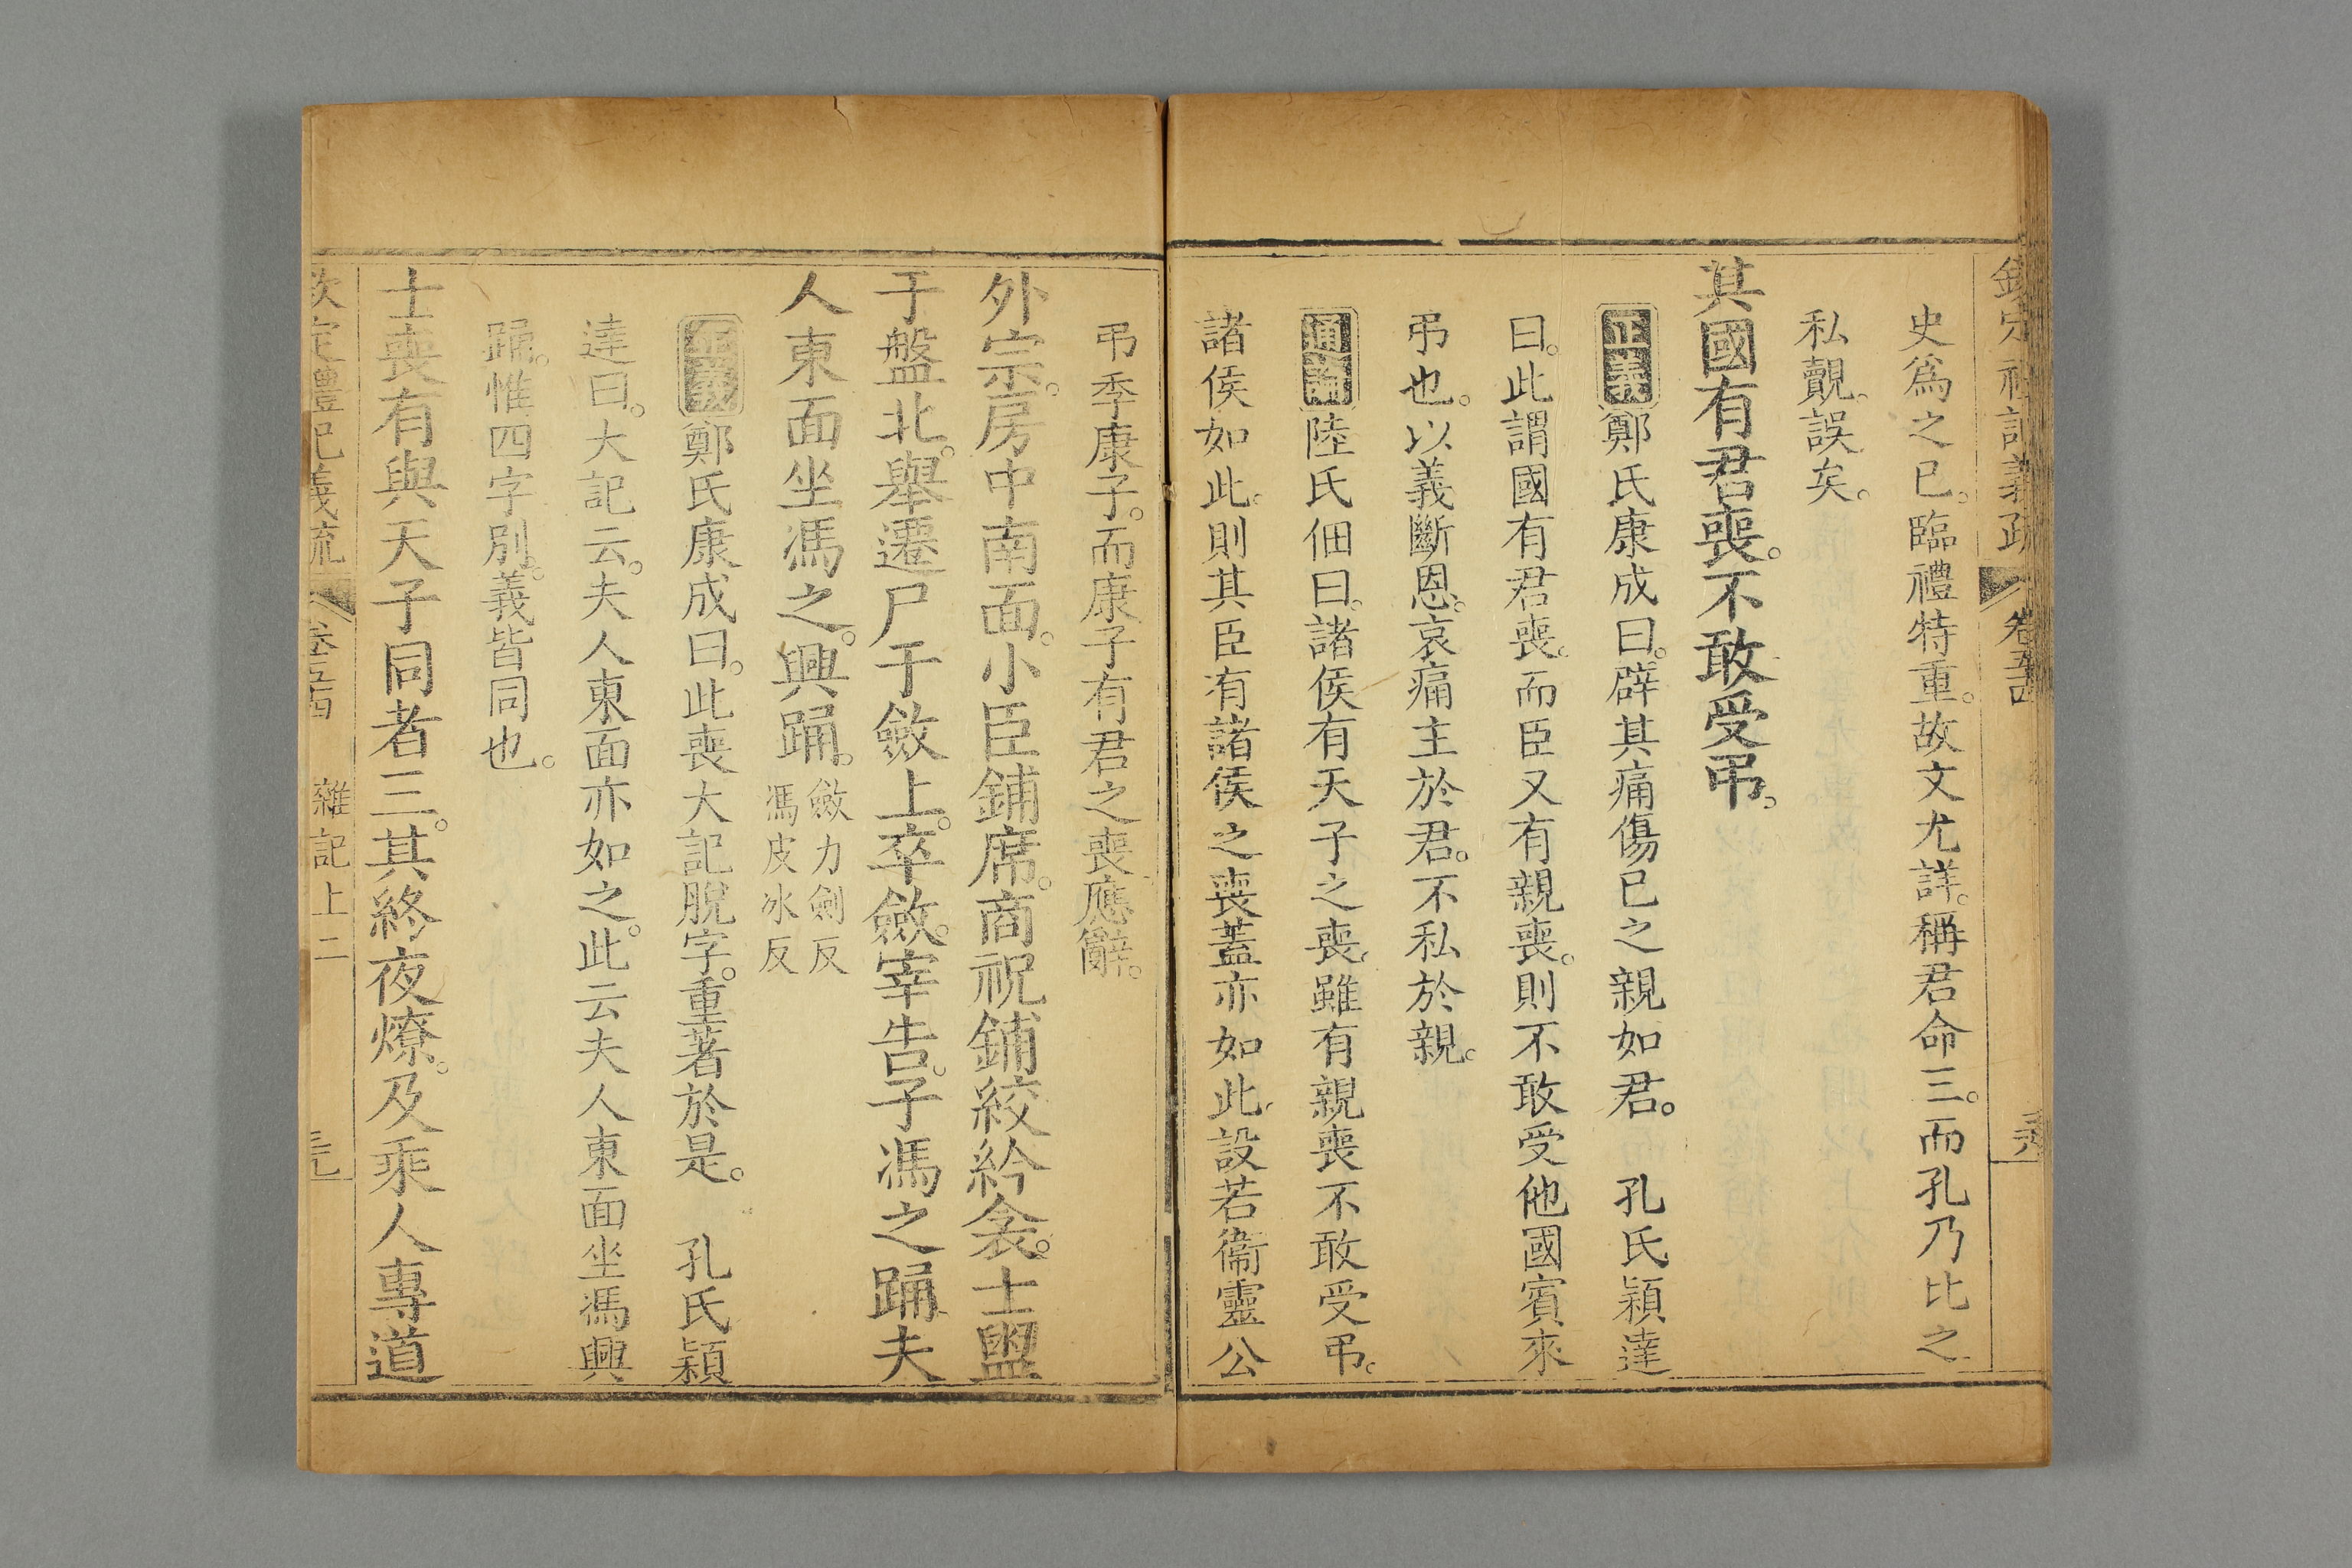 欽定禮記義疏 卷五十四
史爲之已。臨禮特重。故文尤詳。稱君命三。而孔乃比之
私覿。誤矣。
其國有君喪。不敢受弔。
正義鄭氏康成曰。辟其痛傷已之親如君。 孔氏穎達
曰。此謂國有君喪。而臣又有親喪。則不敢受他國賓來
弔也。以義斷恩。哀痛主於君。不私於親。
通論陸氏佃曰。諸侯有天子之喪。雖有親喪不敢受弔。
諸侯如此。則其臣有諸侯之喪蓋亦如此。設若衞靈公
弔季康子。而康子有君之喪應辭。
外宗。房中南面。小臣鋪席。商祝鋪絞紟衾。士盥
于盤北。舉遷尸于斂上。卒斂。宰告。子馮之踊夫
人東面坐馮之。興踊。斂力劍反
馮皮冰反
正義鄭氏康成曰。此喪大記脫字。重著於是。 孔氏穎
達曰。大記云。夫人東面亦如之。此云夫人東面坐馮興
踊。惟四字別。義皆同也。
士喪有與天子同者三。其終夜燎。及乘人專道
欽定禮記義疏 卷五十四 雜記上二